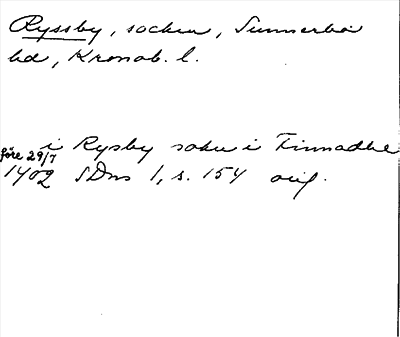 Ryssby, socken, Sunnerbo
hd, Kronob. l.
i Rysby sokn i Finnadhe
före 29/7
1402 SDns 1, s. 154 orig.